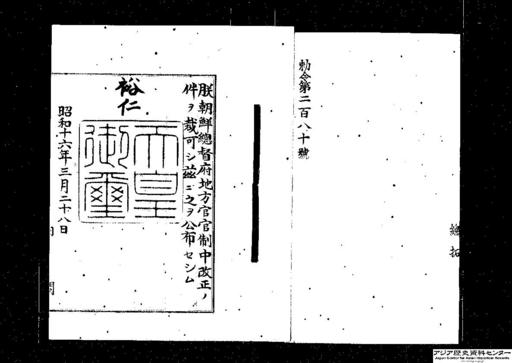 勅令第二百八十號
朕朝鮮總督府地方官官制中改正ノ
件ヲ裁可シ茲ニ之ヲ公布セシム
裕仁
天皇
御璽
昭和十六年三月二十八日
内閣
拓
アジア歴史資料センター
Japan Center for Asian Historical Records